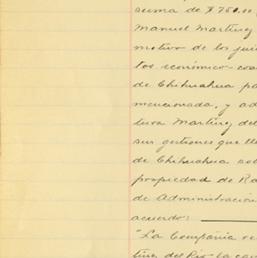 suma de $750.00
Manuel Martinez
motivo de los jui
los económico-coa
de Chihuahua pa
mencionada, y ad
tura Martinez del
sus gestiones que lle
de Chihuahua sob
propiedad de Ra
de Administracion
acuerdo:
"La Compañia re
tinez del Rio la can